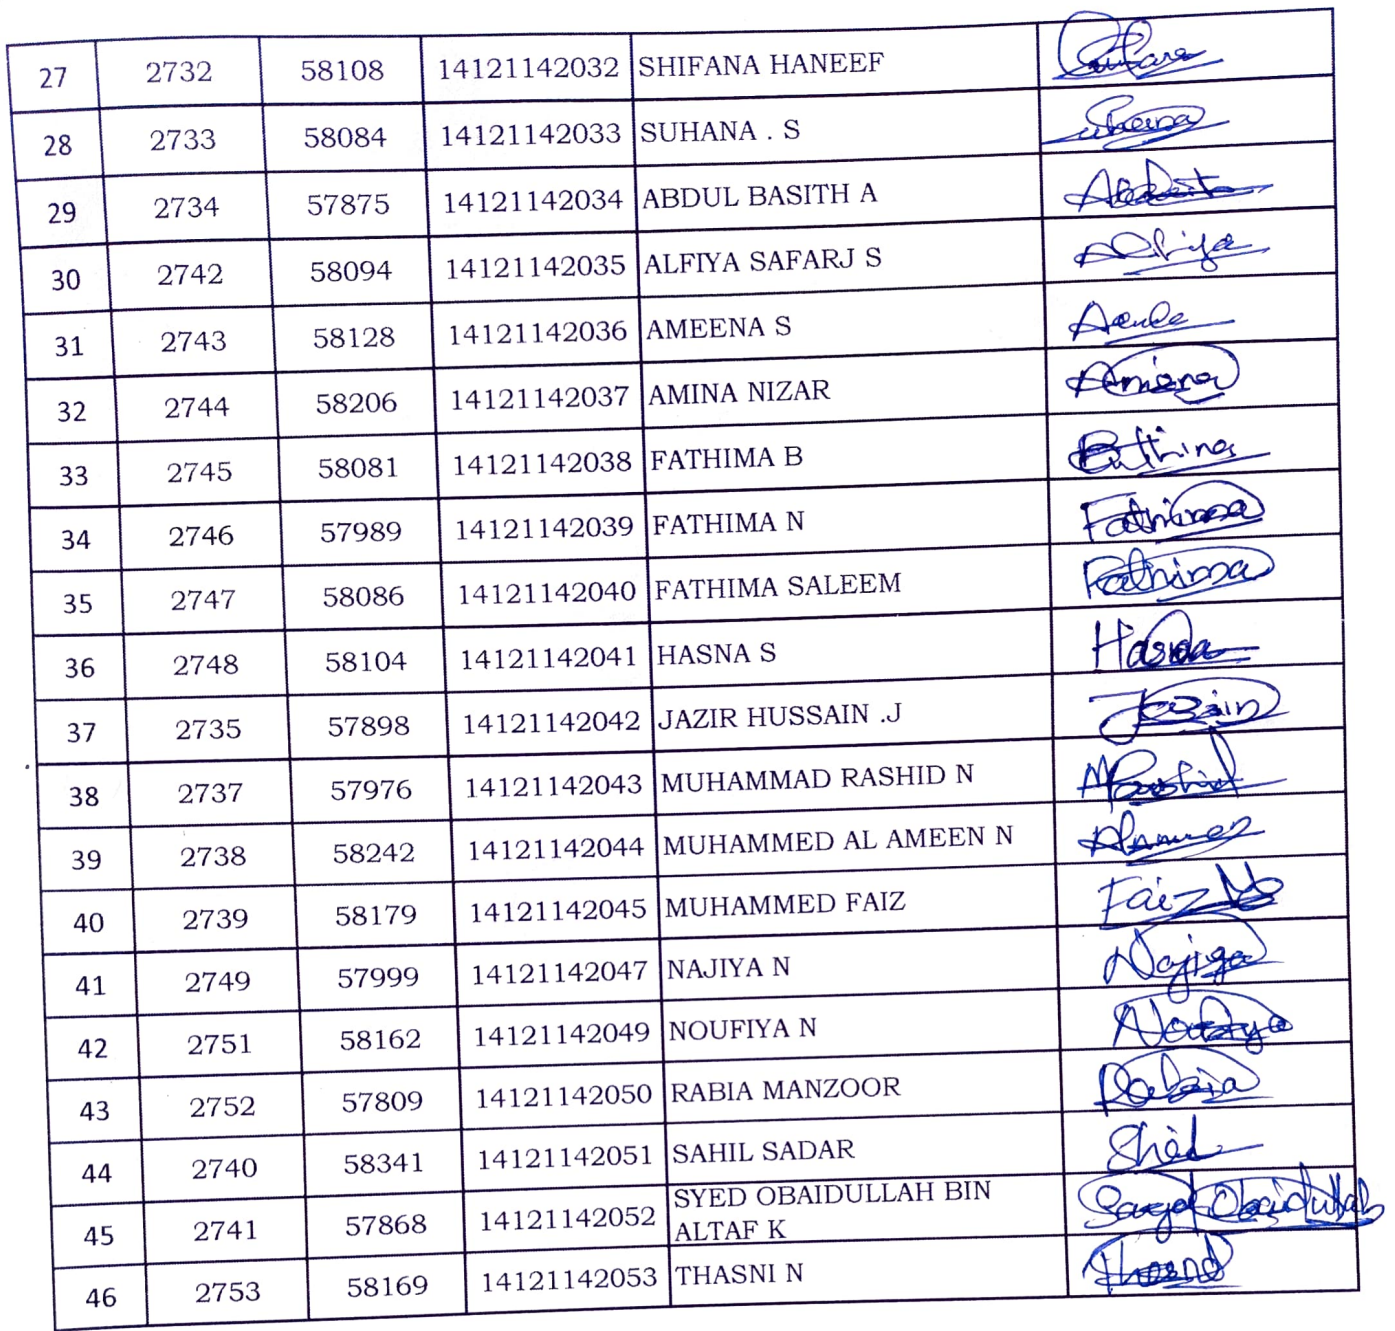 27 2732 58108 14121142032 SHIFANA HANEEF
28 2733 58084 14121142033 SUHANA . S
29 2734 57875 14121142034 ABDUL BASITH A
30 2742 58094 14121142035 ALFIYA SAFARJ S Alfiya
31 2743 58128 14121142036 AMEENA S
32 2744 58206 14121142037 AMINA NIZAR
33 2745 58081 14121142038 FATHIMA B Fathima
34 2746 57989 14121142039 FATHIMA N Fathima
35 2747 58086 14121142040 FATHIMA SALEEM Fathima
36 2748 58104 14121142041 HASNA S Hasna
37 2735 57898 14121142042 JAZIR HUSSAIN .J
38 2737 57976 14121142043 MUHAMMAD RASHID N
39 2738 58242 14121142044 MUHAMMED AL AMEEN N
40 2739 58179 14121142045 MUHAMMED FAIZ Faiz
41 2749 57999 14121142047 NAJIYA N Najiya
42 2751 58162 14121142049 NOUFIYA N
43 2752 57809 14121142050 RABIA MANZOOR Rabia
44 2740 58341 14121142051 SAHIL SADAR
45 2741 57868 14121142052 SYED OBAIDULLAH BIN
ALTAF K Obaidullah
46 2753 58169 14121142053 THASNI N